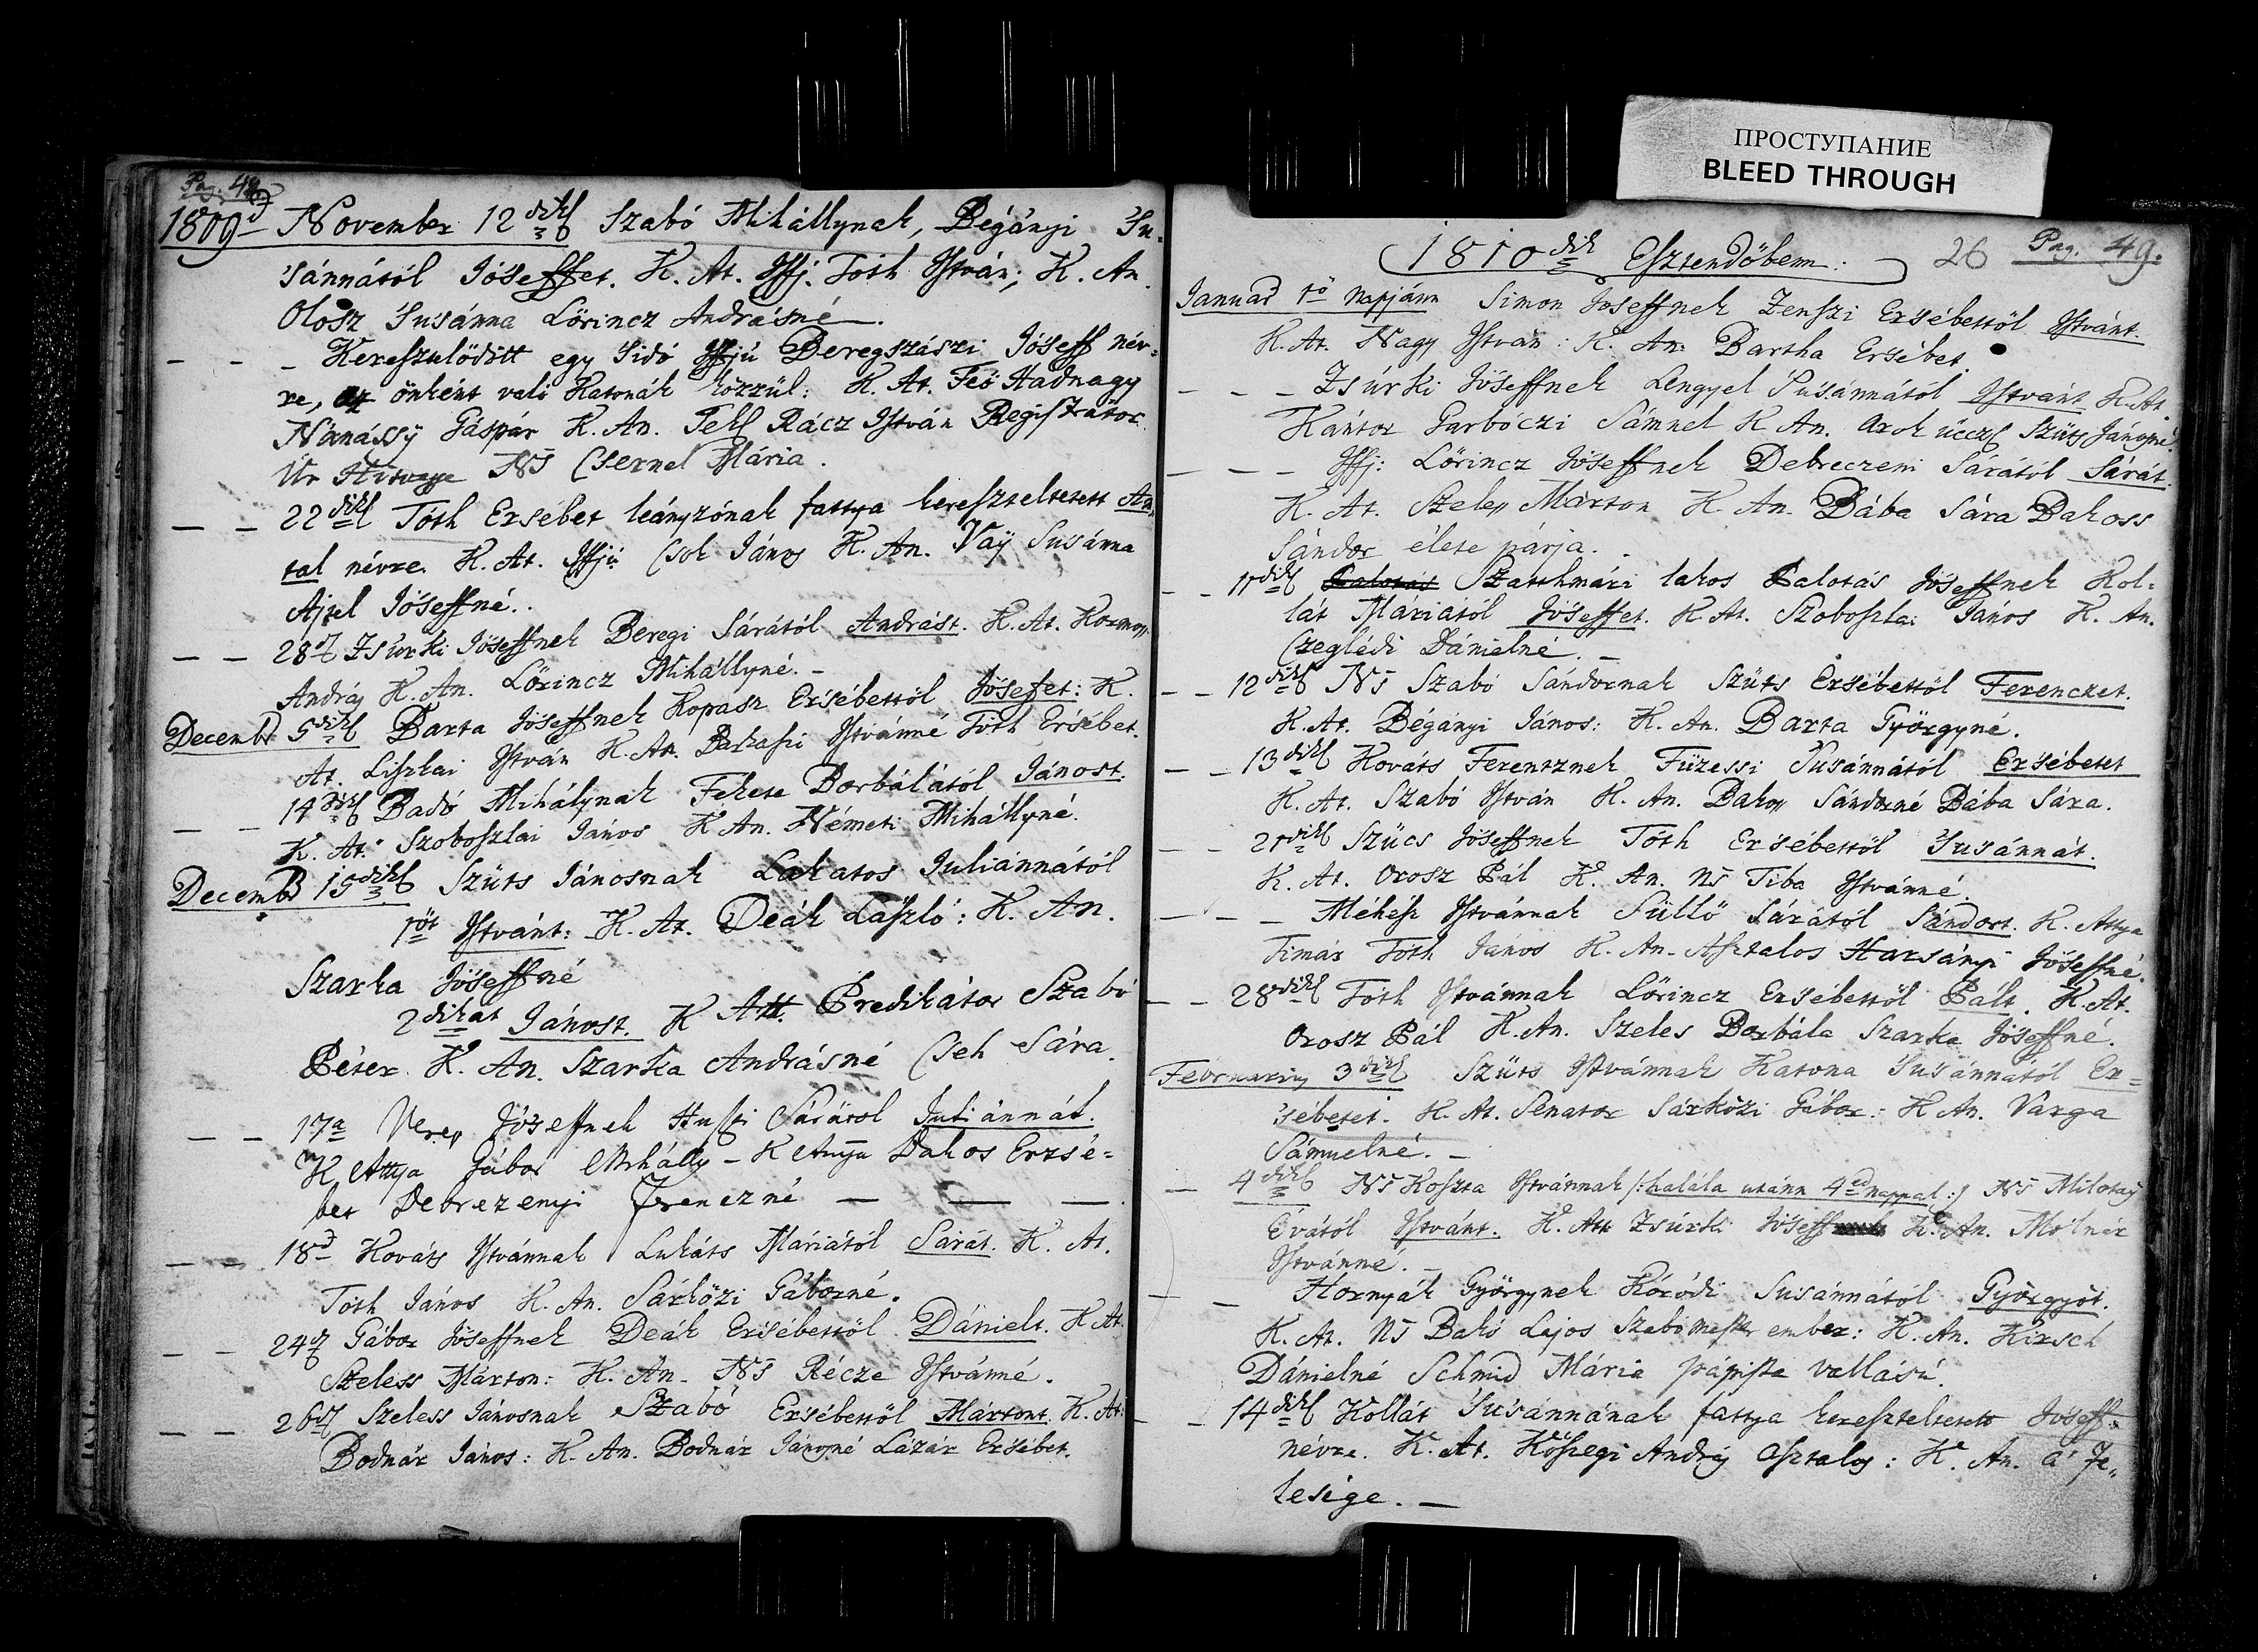 Pag. 48
1809d November 12dikb Szabó Mihállynak, Bégányi Su-
sánnától Jóseffet. K. At. Iffj. Tóth István; K. An.
Olosz Susánna Lörincz Andrásné.
Keresztelödött egy Sidó Iffjú Beregszászi Jóseff név-
re, az önként való Katonák közzül: K. At. Fö Hadnagy
Nánássÿ Gáspár K. An. Tek Rácz István Registrátor
Úr NS Csernel Mária.
– – 22dikb Tóth Ersébet leányzónak fattya kereszteltetett An-
tal névre. K. At. Iffjú Cseh János K. An. Vaÿ Susánna
Ajtel Jóseffné.
– – 28d Zsúrki Jóseffnek Beregi Sárától Andrást. K. At. Kormos
András K. An. Lörincz Mihállyné. –
Decemb 5dikb Barta Jóseffnek Kopasz Ersébettöl Jósefet: K.
At. Liszkai István K. An. Istvánné Tóth Ersébet.
– – 14dikb Badó Mihálynak Fekete Borbálától Jánost.
K. At. Szoboszlai János K. An. Németi Mihállyné.
Decemb 15dikb Szüts Jánosnak Lakatos Juliánnától
1öt Istvánt: K. At. Deák László: K. An.
Szarka Jóseffné
2dikat Jánost. K Att. Prédikátor Szabó
Péter. K. An. Szarka Andrásné Cseh Sára.
– – 17a Veres Jóseffnek Huszti Sárátol Juliánnát.
K Attya Gábor Mihálly – K Annya Bakos Erzsé-
bet Debrezenyi Frenczné – – –
– – 18d Kováts Istvánnak Lukáts Máriától Sárát. K. At.
Tóth János K. An. Sárközi Gáborné.
– – 24d Gábor Jóseffnek Deák Ersébettöl Dánielt. K. At.
Szeless Márton: K. An. NS Récze Istvánné.
– – 26d Szeless Jánosnak Szabó Ersébettöl Mártont. K. At:
Bodnár János: K. An. Bodnár Jánosné Lázár Ersébet.
ПРОСТУПАНИЕ
BLEED THROUGH
1810dik Esztendöbenn: 26 Pag. 49.
Januar 1ö Napjánn Simon Joseffnek Zenszi Ersébettöl Istvánt.
K. At. Nagy István: K. An: Bartha Ersébet.
– – – Zsúrki Jóseffnek Lengyel Susánnától Istvánt K. At.
Kántor Garbóczi Sámuel K An. Arok úcczb Szüts Jánosné.
– – – Iffj: Lörincz Jóseffnek Debreczeni Sárától Sárát.
K. At. Szeless Márton K. An. Bába Sára Bakoss
Sándor élete párja.
– – 11dikb Szatthmári lakos Balotás Jóseffnek Kol-
lát Máriától Jóseffet. K. At. Szoboszlai János K. An.
Czeglédi Dánielné. –
– – 12dikb NS Szabó Sándornak Szüts Ersébettöl Ferenczet.
K. At. Bégányi János: K. An. Barta Györgyné.
– – 13dikb Kováts Ferentznek Füzessi Susánnától Ersébetet
K. At. Szabó István K. An. Bakoss Sándorné Bába Sára.
– – 21dikb Szücs Jóseffnek Tóth Ersébettöl Susánnát.
K. At. Orosz Pál K. An. NS Tiba Istvánné.
– – – Méhész Istvánnak Süllö Sárától Sándort. K. Attya
Timár Tóth János K. An. Asztalos Harsányi Jóseffné.
– – 28dikb Tóth Istvánnak Lörincz Ersébettöl Pált. K. At.
Orosz Pál K. An. Szeles Borbála Szarka Jóseffné.
Februarius 3dikb Szüts Istvánnak Katona Susánnától Er-
sébetet. K. At. Senator Sárközi Gábor: K. An. Varga
Sámuelné. –
– 4dikb NS Koszta Istvánnak /:halála utánn 4ed nappal:/ NS Milotaÿ
Évától Istvánt. K. Att Zsúrki Jóseff K. An. Molnár
Istvánné. –
– – Hornyák Györgynek Kóródi Susánnától Györgyöt.
K. At. NS Bakó Lajos Szabó mester ember: K. An. Kirsch
Dánielné Schmid Mária pápista vallású.
– – 14dikb Kollát Susánnának fattya kereszteltetett Jóseff
névre. K. At. Köszegi András Asztalos: K. An. a' Fe-
lesége. –